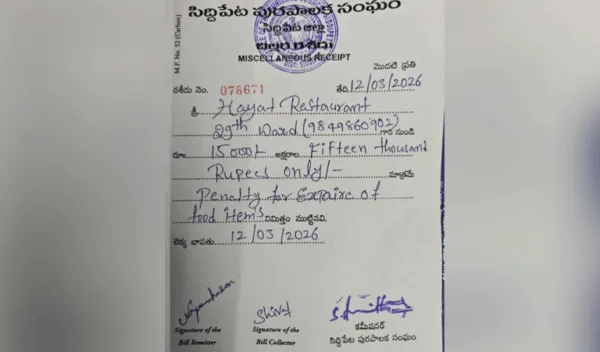 సిద్దిపేట పురపాలక సంఘం
సిద్దిపేట జిల్లా
MISCELLANEOUS RECEIPT
M.F. No. 52 (Carbon)
మొదటి ప్రతి
రశీదు నెం. 078671 తేది 12/03/2026
శ్రీ Hayat Restaurant
29th Ward (9849860902) గారి నుండి
రూ 15000/- అక్షరాల Fifteen thousand
Rupees only/- మాత్రమే
Penalty for Expaire of
food items నిమిత్తం ముట్టినవి.
లెక్క బాపతు 12/03/2026
Shivat
Signature of the
Bill Remitter
Signature of the
Bill Collector
కమీషనర్
సిద్దిపేట పురపాలక సంఘం